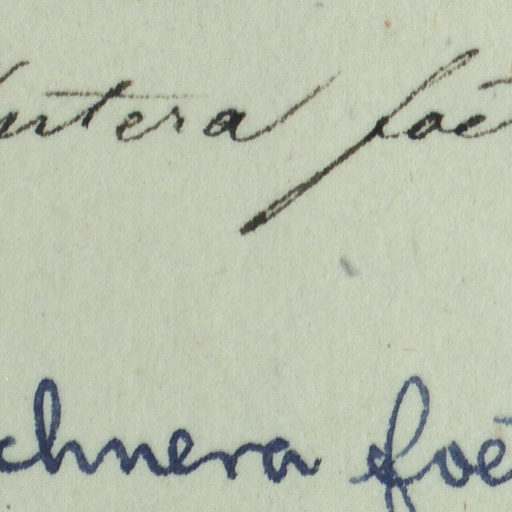 urtera foë
chnera foë